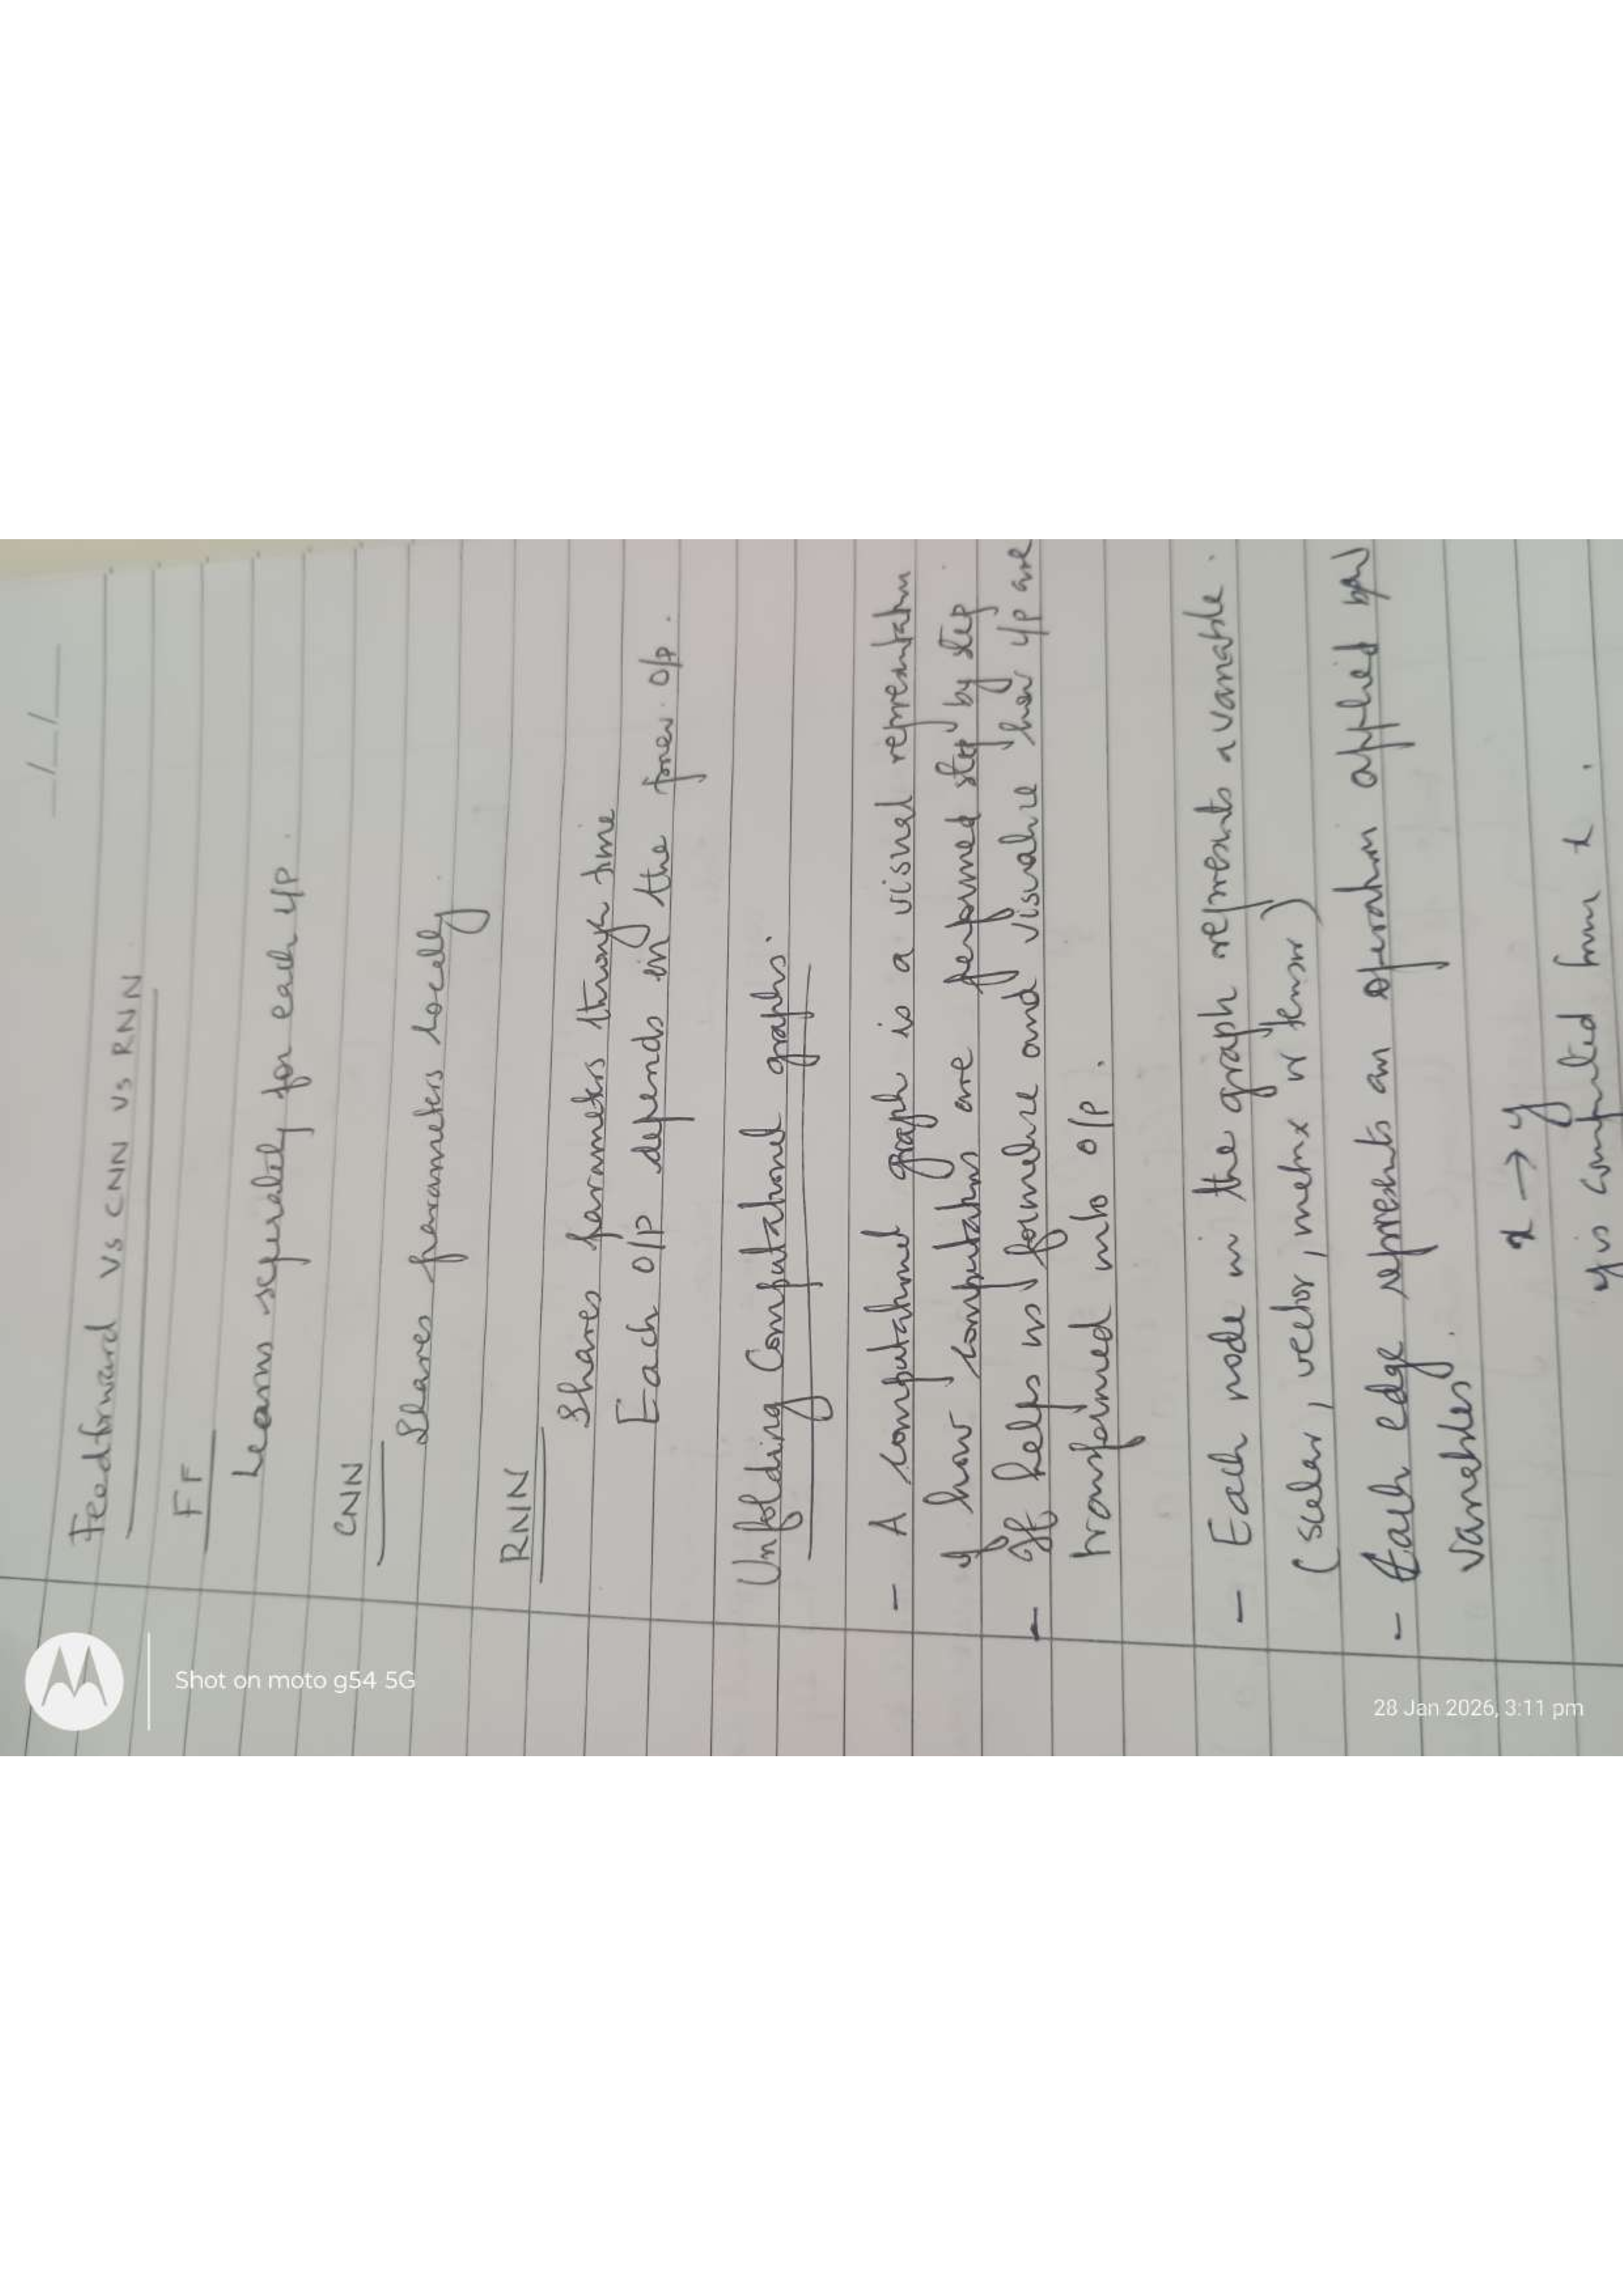 __/__/____
Feedforward Vs CNN Vs RNN
FF
Learns seperately for each i/p.
CNN
Shares parameters locally
RNN
Shares parameters through time
Each o/p depends in the prev. o/p.
Unfolding Computational graphs.
- A computational graph is a visual representation
of how computations are performed step by step.
- It helps us formulize and visualize how i/p are
transformed into o/p.
- Each node in the graph represents a variable.
(scalar, vector, matrix or tensor)
- Each edge represents an operation applied
variables.
x → y
y is computed from x.
Shot on moto g54 5G
28 Jan 2026, 3:11 pm